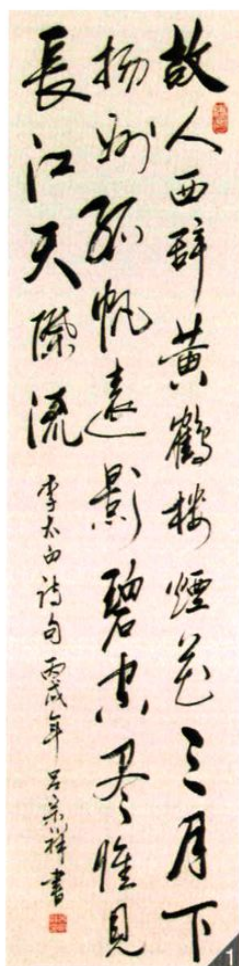 故人西辞黄鹤楼煙花三月下
揚州孤帆遠影碧空尽惟見
長江天際流
李太白诗句 丙戌年 吕荣祥書
1